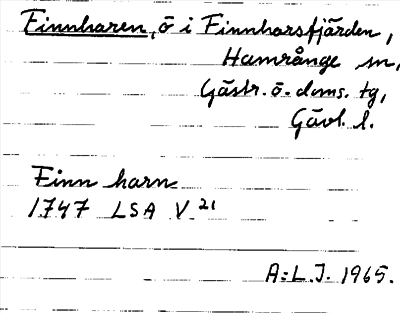 Finnharen, ö i Finnharsfjärden,
Hamrånge sn,
Gästr. ö. doms. tg,
Gävl. l.
Finn harn
1747 LSA V 21
A:L.J. 1965.